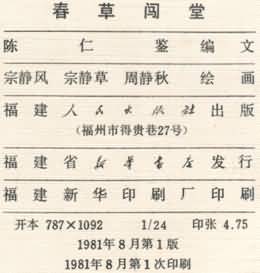 春草闯堂
陈仁鉴 编文
宗静风 宗静草 周静秋 绘画
福建人民出版社出版
(福州市得贵巷27号)
福建省新华书店发行
福建新华印刷厂印刷
开本 787×1092 1/24 印张 4.75
1981年8月第1版
1981年8月第1次印刷